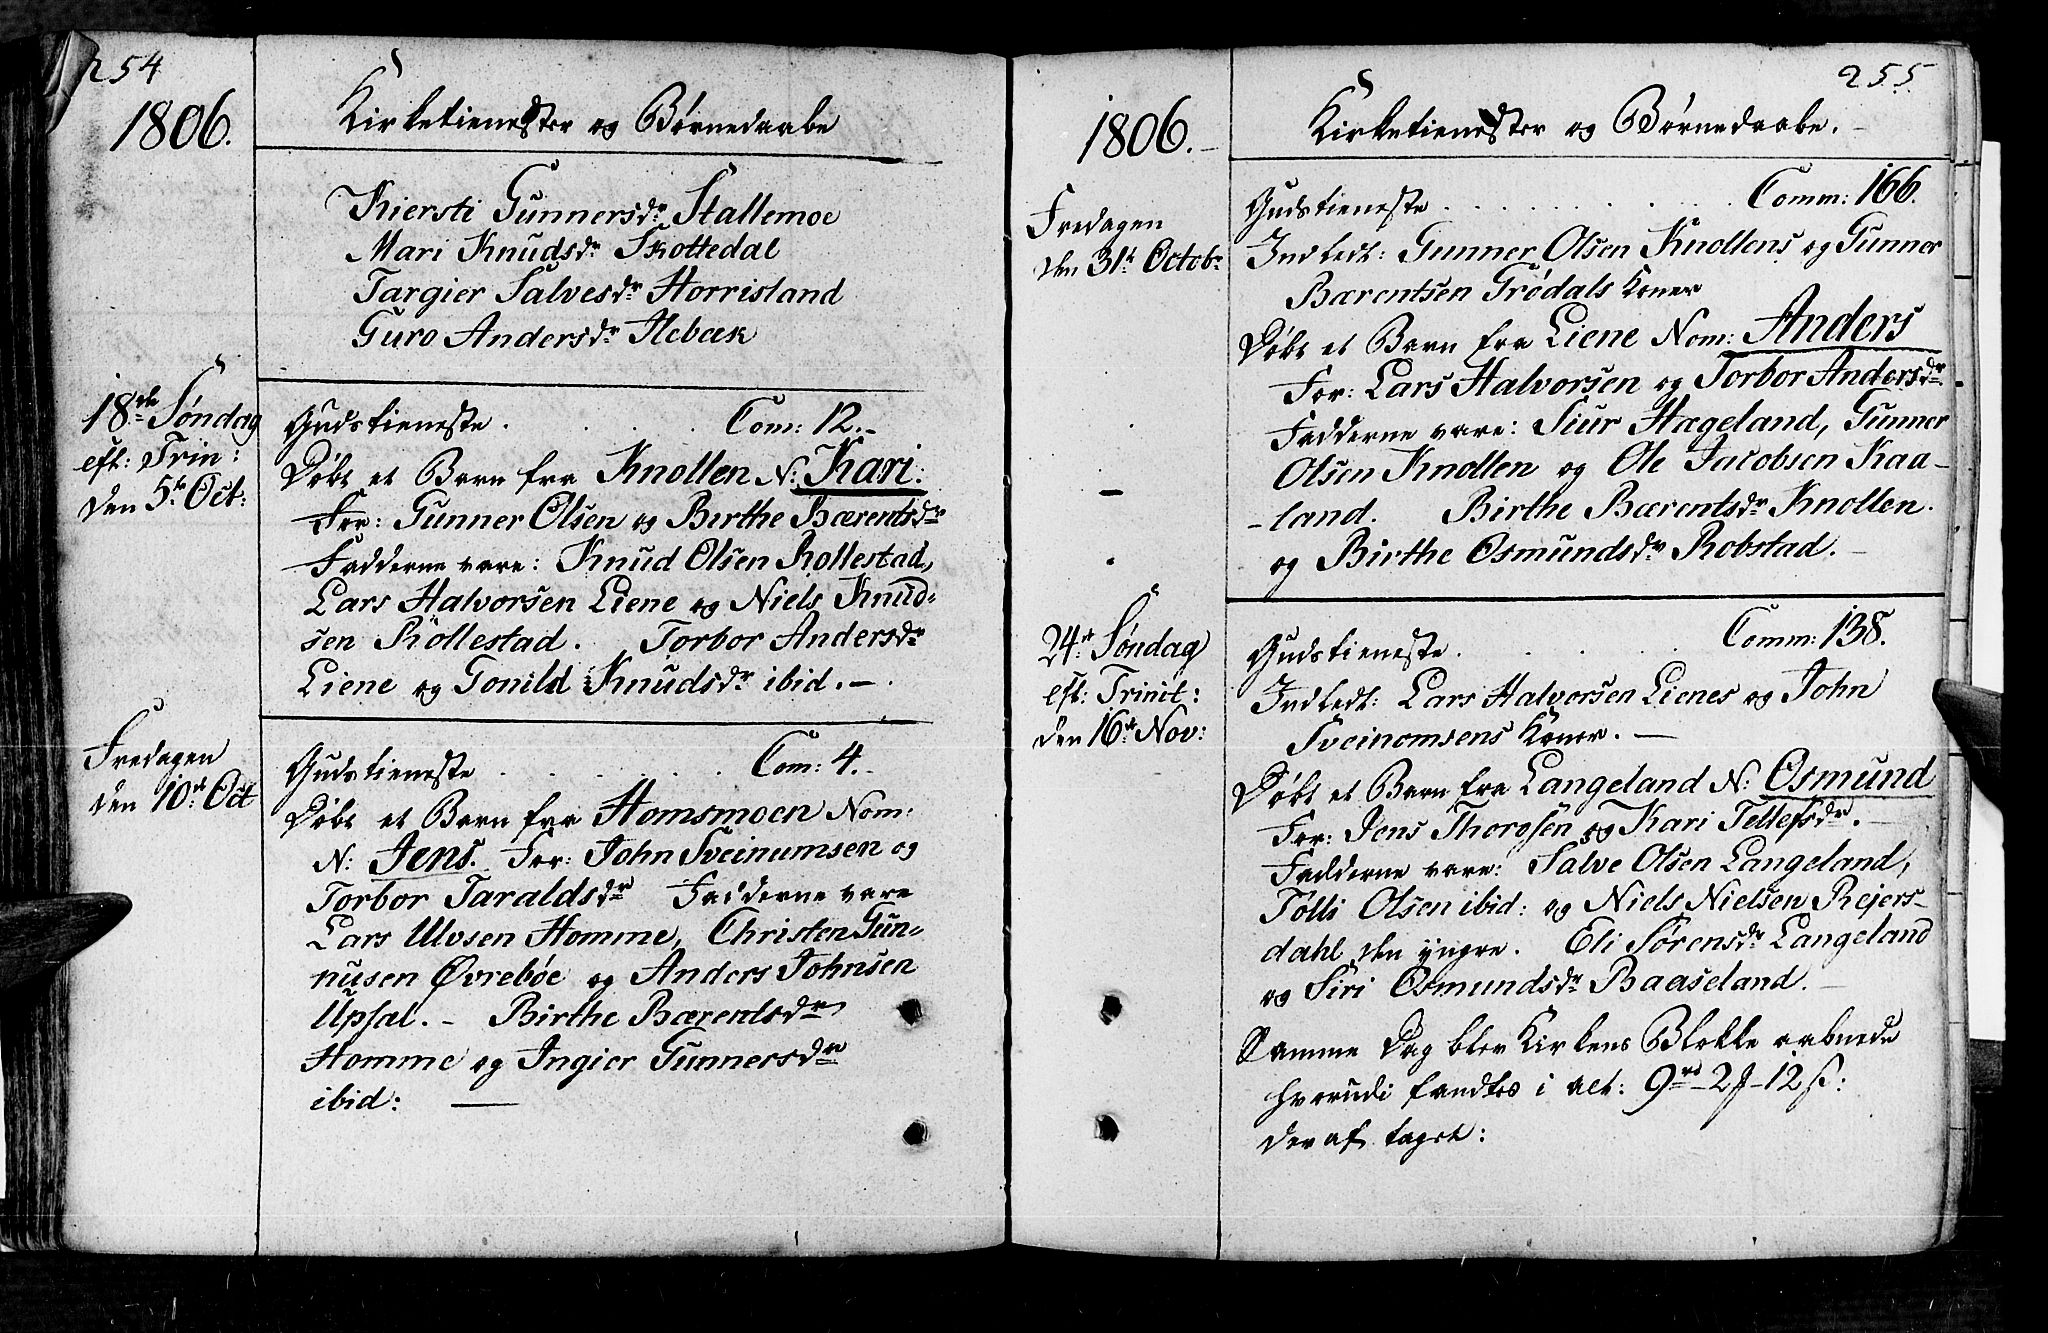 254
1806.
Kirketienester og Børnedaabe
Kiersti Gunnersdr Stallemoe
Mari Knudsdr Skottedal
Targier Salvesdr Horrisland
Guro Andersdr Ilebæk
18de Søndag
eft: Trin:
den 5te Oct:
Gudstieneste . . . . . Com: 12.-
Døbt et Barn fra Knollen N: Kari.
For: Gunner Olsen og Birthe Bærentsdr
Fadderne vare: Knud Olsen Rollestad,
Lars Halvorsen Liene og Niels Knud-
sen Röllestad. Torbor Andersdr
Liene og Gonild Knudsdr ibid. -.
Fredagen
den 10de Oct
Gudstieneste . . . . . Com: 4.-
Døbt et Barn fra Homsmoen Nom:
N: Jens. For: John Sveinumsen og
Torbor Taraldsdr Fadderne vare
Lars Ulvsen Homme, Christen Gun-
nusen Øvrebøe og Anders Johnsen
Upsal. - Birthe Bærentsdr
Homme og Ingier Gunnersdr
ibid: —
255
1806.
Kirketienester og Børnedaabe. -
Fredagen
den 31te Octobr
Gudstieneste . . . . . . . . Comm: 166.
Indledt: Gunner Olsen Knollens og Gunner
Bærentsen Trødals Koner
Døbt et Barn fra Liene Nom: Anders
For: Lars Halvorsen og Torbor Andersdr
Fadderne vare: Siur Hægeland, Gunner
Olsen Knollen og Ole Jacobsen Kaa-
-land. Birthe Bærentsdr Knollen.
og Birthe Osmundsdr Robstad. -
24de Søndag
eft: Trinit:
den 16de Nov:
Gudstieneste . . . . . Comm: 138.
Indledt: Lars Halvorsen Lienes og John
Sveinomsens Koner. -
Døbt et Barn fra Langeland N: Osmund
For: Jens Thorosen og Kari Tellefsdr.
Fadderne vare: Salve Olsen Langeland,
Tolli Olsen ibid: og Niels Nielsen Rejers-
dahl den yngre. Eli Sørensdr Langeland
og Siri Osmundsdr Baaseland. -
Samme Dag blev Kirkens Blokke aabnede
hvorudi fandtes i alt: 9rd - 2 - 12 ß:
deraf taget: